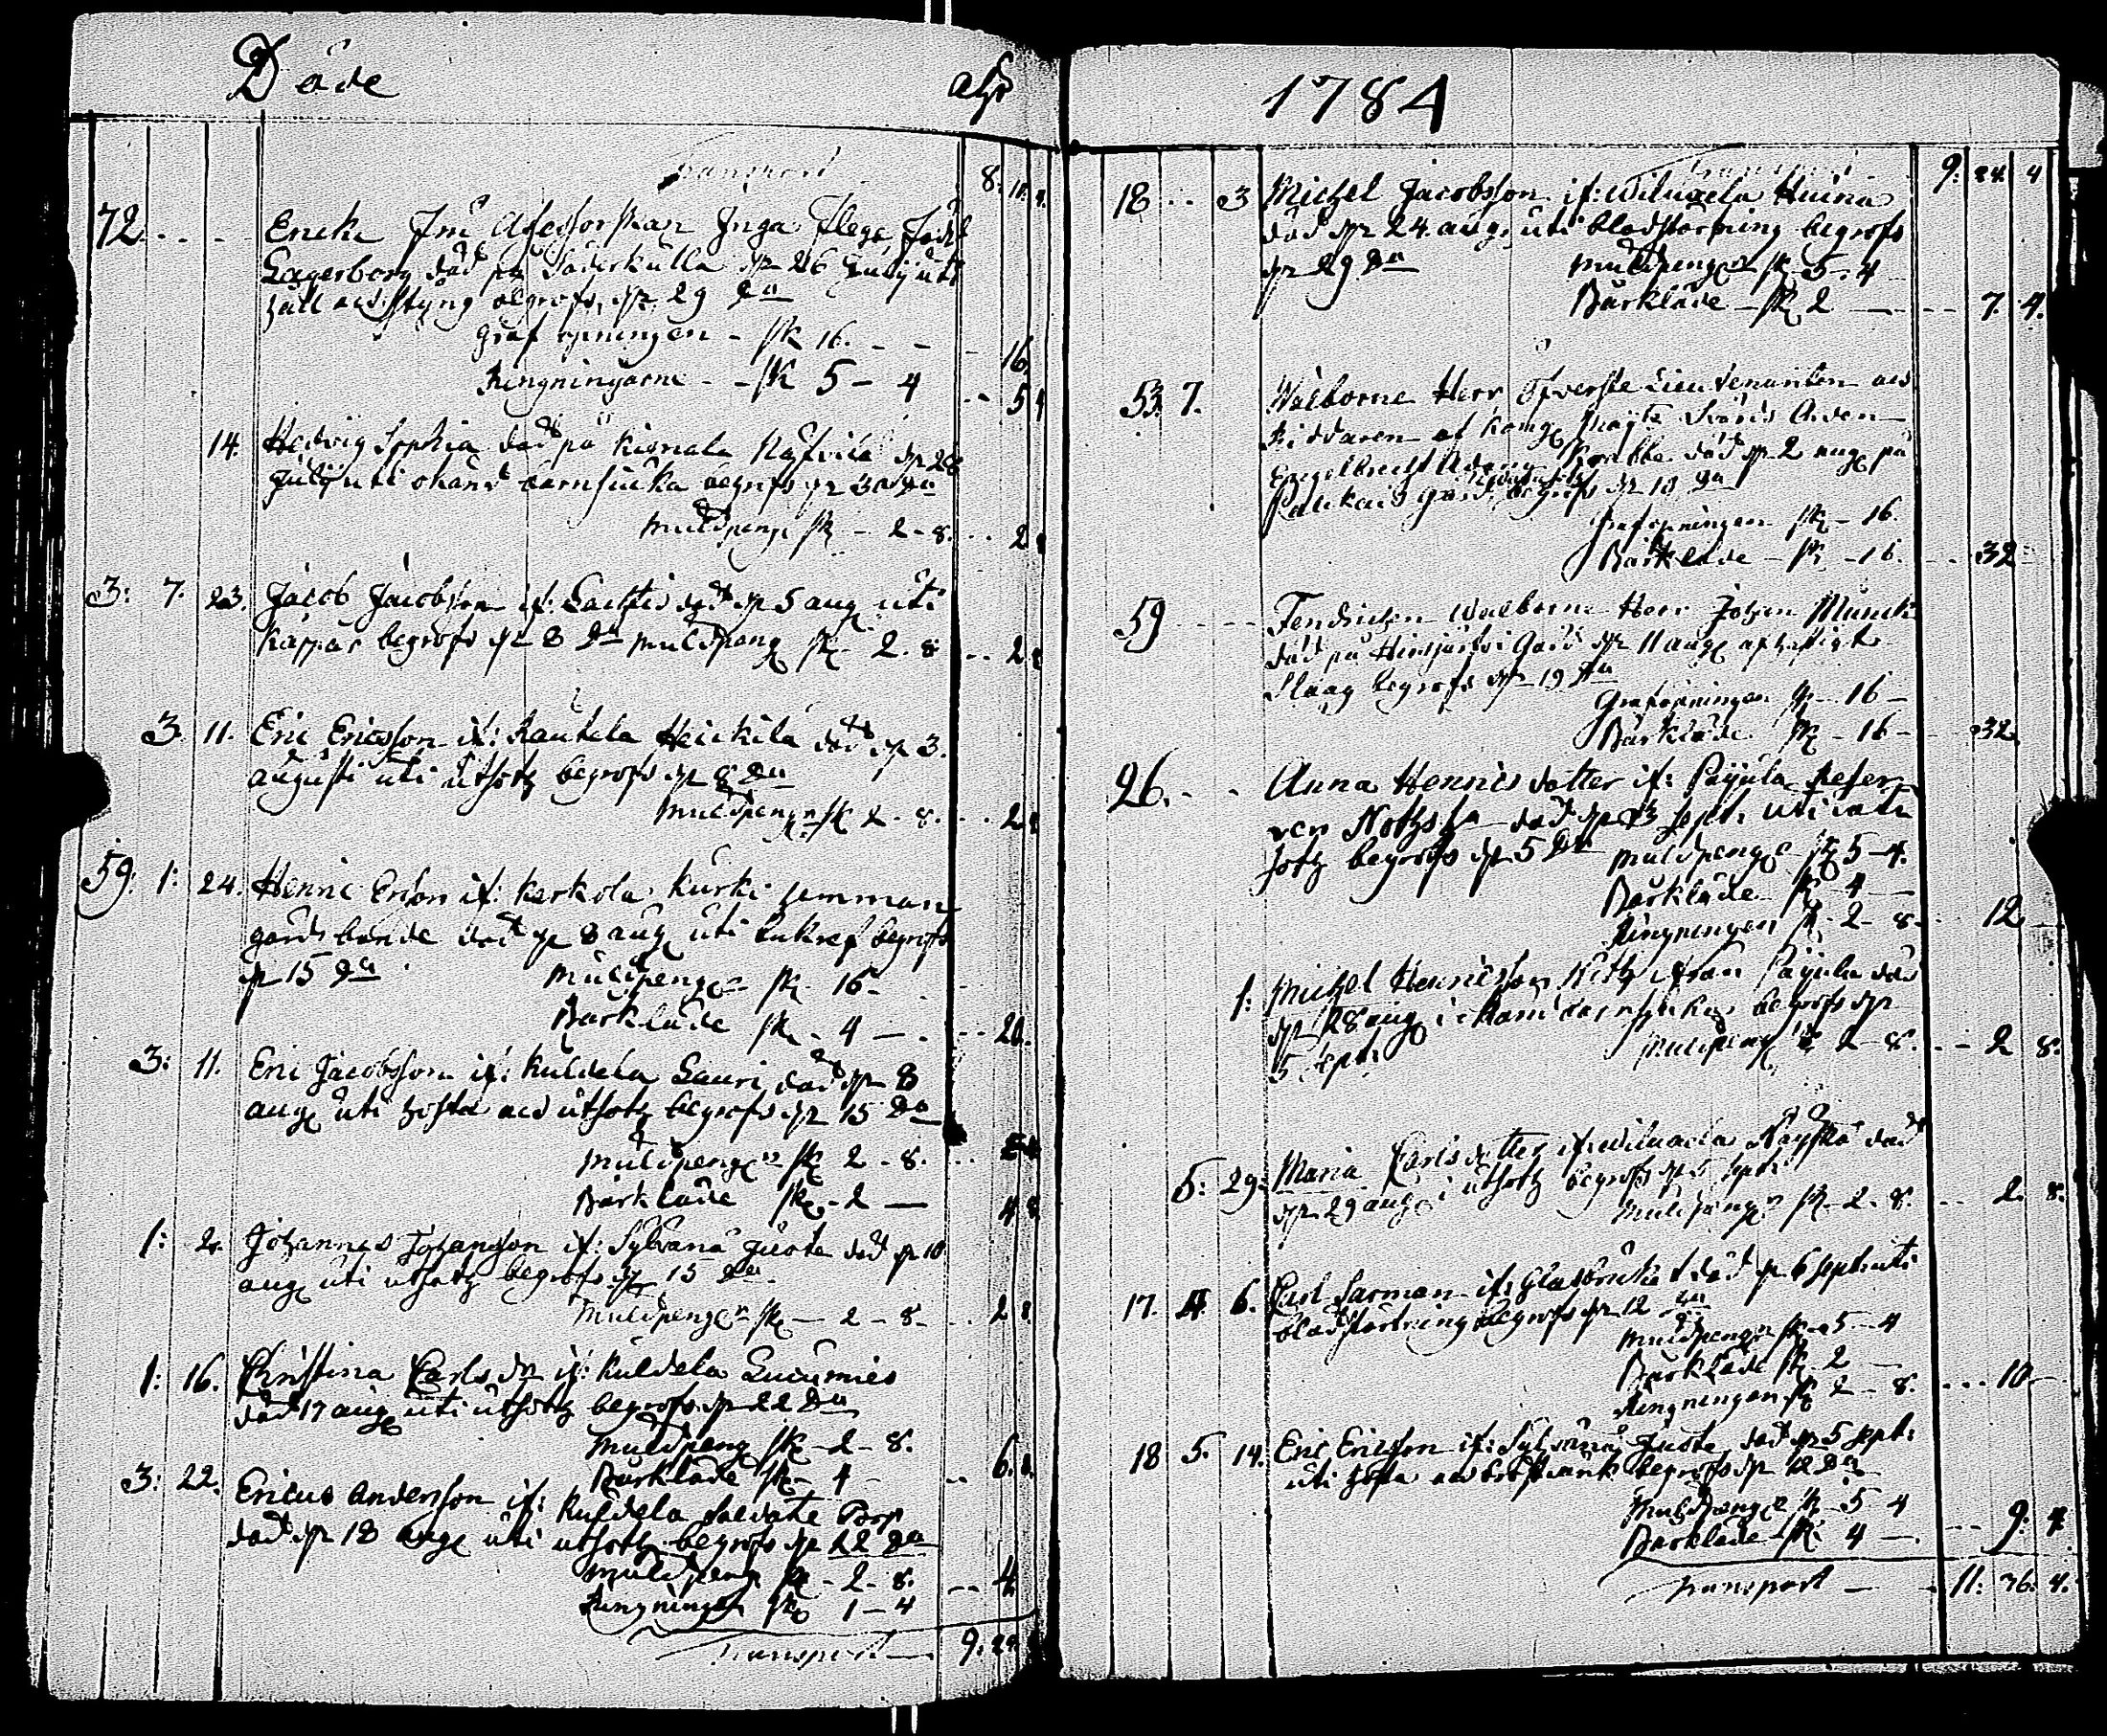 Döde
åhr
Transport 8: 18.
72. Encke Fru Assessorskan Inga Flege född
Lagerborg död på Söderkulla d. 26 Julij uti
håll och styng begrofs d. 29 Do
Graf öpningen - sk 16. - - 16.
Ringningarne - - sk 5 - 4 5 4
14. Hedvig Sophia död på Kiemala d. 28
Julij uti okänd barnsiuka begrofs d. 30 Do
Muldpeng sk - 2 - 8. 2 8
3: 7. 23. Jacob Jacobsson if: död d. 5 aug uti
Kåppår begrofs d. 8 Do Muldpeng sk 2. 8 2 8
3. 11. Eric Ericsson if: Rautela Heickilä död d. 3.
augusti uti utsotg begrofs d. 8 Do
Muldpeng sk 2 - 8. 2 8
59: 1: 24. Henric Erson if: Kerkola Kurki hemman
gårds bonde död d. 8 aug uti begrofs
d. 15 Do Muldpeng sk 16 -
Bårkläde sk - 4 - 20.
3: 11. Eric Jacobsson if: Kuldela Lauri död d. 8
aug uti hosta och utsotg begrofs d. 15 Do
Muldpeng sk 2 - 8.
Bårkläde sk - 2 — 4 8
1: 2. Johannes Johansson if: Sylvänä Juota död d. 10
aug uti utsotg begrofs d. 15 Do
Muldpeng sk - 2 - 8 - 2 8
1: 16. Christina Carls dr if: Kuldela Luicumies
död 17 aug uti utsotg begrofs d. 22 Do
Muldpeng sk - 2 - 8.
Bårkläde sk - 4 - 6. 8
3: 22. Ericus Andersson if: Kuldela Soldate
död d. 18 aug uti utsotg begrofs d. 22 Do
Muldpeng sk - 2 - 8. 4
Ringningen sk 1 - 4
Transport — 9: 24
1784
Transport 9: 24 4
18 - - 3 Michel Jacobsson if: Wiluxela Huina
död d. 24. aug. uti blodstörtning begrofs
d. 29 Do Muldpeng sk 5 - 4
Bårkläde - sk 2 - 7. 4.
53. 7. Wälborne Herr Öfverste Lieutenanten och
Riddaren af Kongl Mayts Svärds Orden
Engelbrecht död d. 2 aug på
gård begrofs d. 10 Do
Graföpningen sk - 16.
Bårkläde - sk - 16. 32
59 Fendrichen Wälborne Herr Johan Munck
död på Hirsjärvi Gård d. 11 aug af häftigt
Slaag begrofs d. 19 Do
Graföpningen sk - 16 -
Bårkläde sk - 16 - 32.
26. - - Anna Henrics dotter if: Pajula
död d. sept. uti
begrofs d. 5 Do Muldpeng sk 5 - 4.
Bårkläde sk 4 —
Ringningen sk - 2 - 8 - 12
1: Michel Henricsson från Pajula död
d. 28 aug i barnsiuka begrofs d.
5 Sept: Muldpeng sk 2 - 8. - 2 8.
5: 29: Maria Carls dotter if: Wiluxela död
d. 29 aug i utsotg begrofs d. 5 sept:
Muldpeng sk - 2 - 8. 2. 8.
17. 4. 6. Carl Sarman if: Glasbruket död d. 6 sept: uti
blodstörtning begrofs d. 12 Do
Muldpeng sk - 5 - 4
Bårkläde sk 2 —
Ringningen sk 2 - 8. 10 —
18 5. 14. Eric Ericsson if: Sylvänä Juota död d. 5 sept:
uti hosta och begrofs d. 12 Do
Muldpeng sk 5 4
Bårkläde sk 4 — 9: 4
Transport — 11: 36: 4.